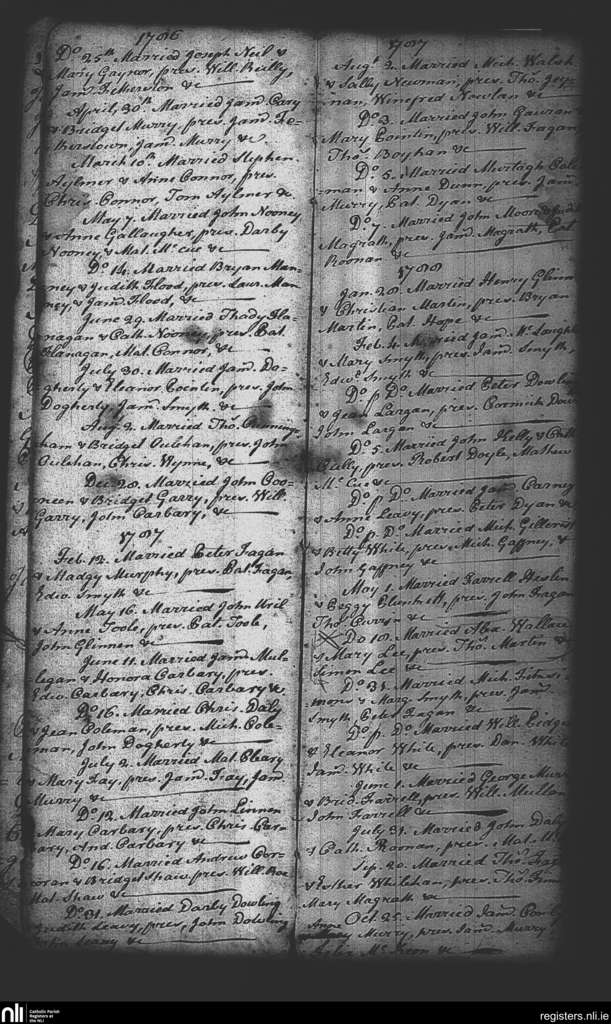 1786
Do. 25th Married Joseph Neil &
Mary Gaynor, pres. Will. Reilly,
Jam. Fetherston &c
April, 30th Married Jam. Cary
& Bridget Murry, pres. Jam. Fe-
therstown, Jam. Murry &c
March 10th Married Stephen
Aylmer & Anne Connor, pres.
Chris. Connor, Tom Aylmer &c
May 7. Married John Nooney
& Anne Gallaugher, pres. Darby
Nooney & Mat. Mc Cue &c
Do. 14. Married Bryan Man-
ney & Judith Flood, pres. Laur. Man
ney, & Jam. Flood, &c
June 29. Married Thady Fla-
nagan & Cath. Nooney, pres. Pat.
Flanagan, Mat. Connor, &c
July 30. Married Jam. Do-
gherty & Eleanor Conlin, pres. John
Dogherty, Jam. Smyth. &c
Aug. 2. Married Thos. Cunning-
ham & Bridget Oulehan, pres. John
Oulehan, Chris. Wynne, &c
Dec. 28. Married John Coo-
neen & Bridget Garry, pres. Will.
Garry, John Carbary, &c
1787
Feb. 12. Married Peter Fagan
& Madgy Murphy, pres. Pat. Fagan,
Edw. Smyth &c
May 16. Married John
& Anne Toole, pres. Pat. Toole,
John Glennen &c
June 11. Married Jam. Mul-
legan & Honora Carbary, pres.
Edw. Carbary, Chris. Carbary &c
Do. 16. Married Chris. Daly
& Jean Coleman, pres. Mich. Cole-
man, John Dogherty &c
July 2. Married Mat. Cleary
& Mary Fay, pres. Jam. Fay, Jam.
Murry &c
Do. 12. Married John Linnen
Mary Carbary, pres. Chris. Car-
bary, And. Carbary &c
Do. 16. Married Andrew Cor-
coran & Bridget Shaw, pres. Will. Roe
Mat. Shaw &c
Do. 31. Married Darby Dowling
Judith Leavy, pres, John Dowling
Leavy &c
1787
Augt. 2. Married Mich. Walsh
& Sally Newman, pres. Tho.
nan, Winefred Nowlan &c
Do. 3. Married John Gavran
Mary Comlin, pres. Will. Fagan,
Thos. Boyhan &c
Do. 5. Married Murtagh Cole
man & Anne Dunn, pres. Jam.
Murry, Pat. Dyan &c
Do. 7. Married John Moore
Magrath, pres. Jam. Magrath, Pat.
Roonan &c
1788
Jan. 28. Married Henry Glenn
& Christian Martin, pres. Bryan
Martin, Pat. Hope &c
Feb. 4. Married Jam. Mc Laugh
& Mary Smyth, pres. Jam. Smyth,
Edw. Smyth &c
Do. p. Do. Married Peter Dowling
& Jean Largan, pres. Cormick Dow
John Largan &c
Do. 5. Married John Kelly & Cath
Cully, pres. Robert Doyle, Mathew
Mc Cue &c
Do. p. Do. Married Jam. Carney
& Anne Leavy, pres. Peter Dyan &c
Do. p. Do. Married Mich. Gillerist
& Betty White, pres. Mich. Gaffney, &
John Gaffney &c
May 1. Married Farrell Heslin
& Peggy Plunkett, pres. John Fagan
Thos. &c
Do 10. Married Alex. Wallace
& Mary Lee, pres. Thos. Martin &
Simon Lee &c
Do. 31. Married Mich. Fitzsi-
mons & Marg. Smyth, pres. Jam.
Smyth, Peter Fagan &c
Do. p. Do. Married Will. Ledge
& Eleanor White, pres. Dan. White
Jam. White &c
June 1. Married George Murr
& Brid. Farrell, pres. Will. Mullen
John Farrell &c
July 31. Married John Daly
& Cath. Roonan, pres. Mat. Mc
Sep. 20. Married Thos. Fag
& Esther Whelehan, pres. Thos.
Mary Magrath &c
Oct. 25. Married Jam.
Anne Murry, pres. Jam. Murry
Mc Keon &c
nli
Catholic Parish
Registers at
the NLI
registers.nli.ie